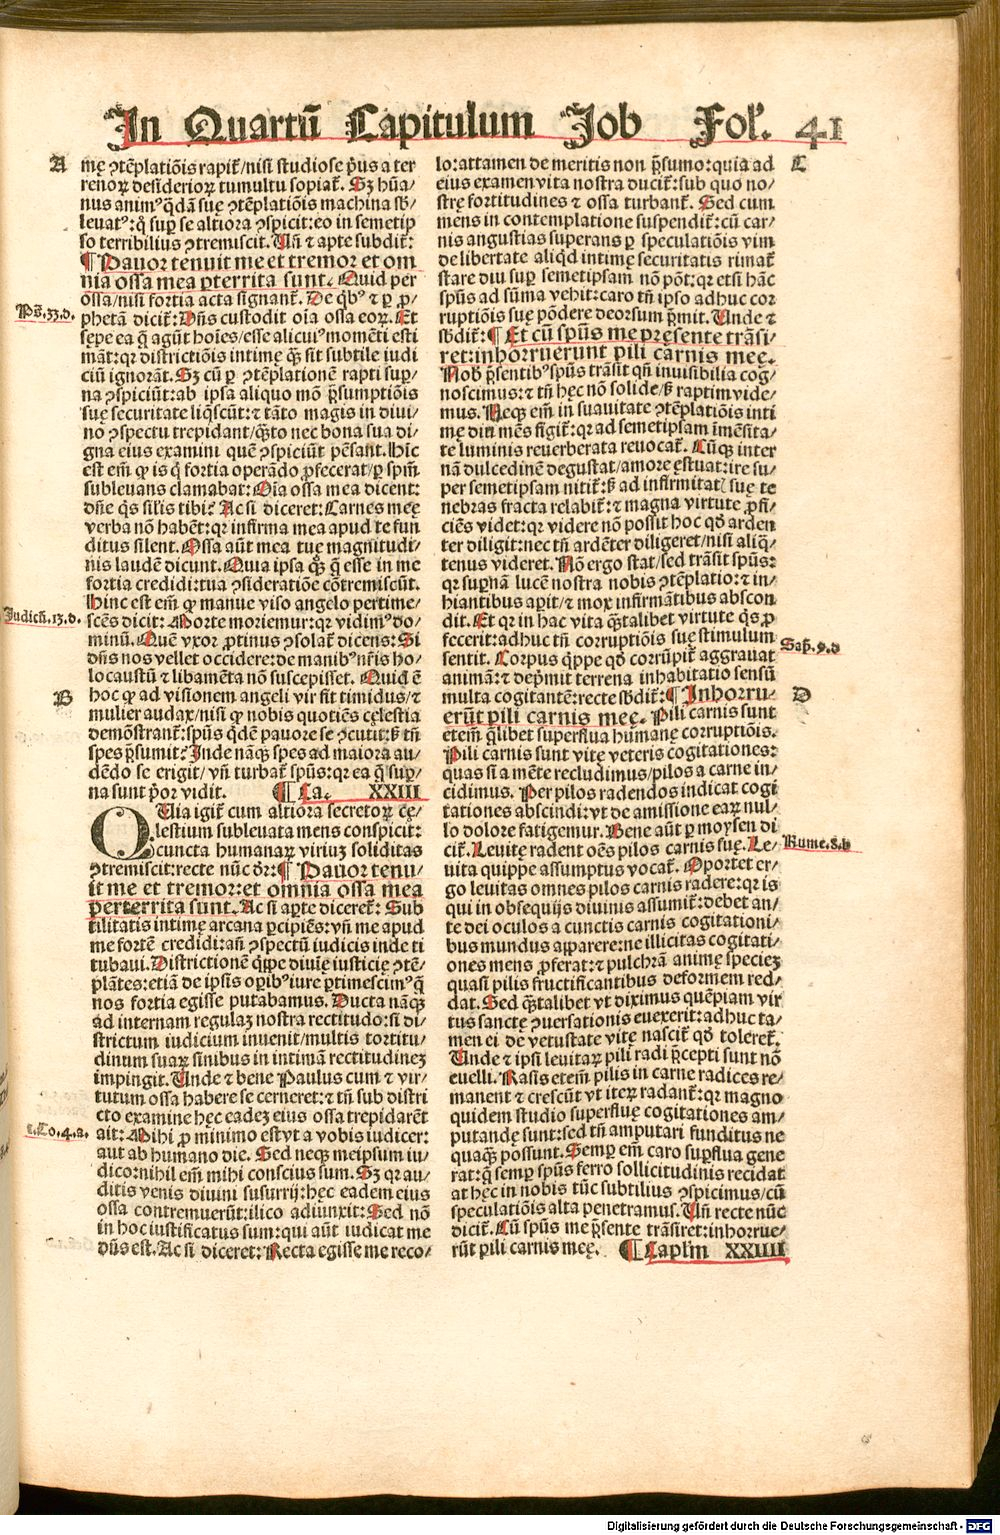 In Quartū Capitulum Job Folʼ. 41
A
mę ↄtēplatiōis rapit᷑/nisi studiose pʼus a ter
renoꝝ desideriorꝝ tumultu sopiat᷑. Sꝫ hūa/
nus animꝰ q̄dā suę ↄtēplatiōis machina sb̄/
leuatꝰ: q̄ suꝑ se altiora ↄspicit: eo in semetip
so terribilius ↄtremiscit. Uñ ⁊ apte subdit᷑:
¶ Pauor tenuit me et tremor et om
nia ossa mea ꝑterrita sunt. Quid per
ossa/nisi fortia acta signant᷑. De qb̄ꝰ ⁊ ꝑ ꝓ/
Ps̄.33.d.
phetā dicit᷑: Dñs custodit oīa ossa eoꝝ. Et
sepe ea q̄ agūt hoīes/esse alicuiꝰ momēti esti
māt: qꝛ districtiōis intimę qꝫ̄ sit subtile iudi
ciū ignorāt. Sꝫ cū ꝑ ↄtēplationē rapti suꝑ/
na ↄspiciūt: ab ipsa aliquo mō p̄sumptiōis
suę securitate liq̄scūt: ⁊ tāto magis in diui/
no ↄspectu trepidant/qꝫ̄to nec bona sua di/
gna eius examini quē ↄspiciūt pēsant. Hīc
est em̄ ꝙ is q̄ fortia operādo ꝓfecerat/ꝑ spm̄
subleuans clamabat: Oīa ossa mea dicent:
dñe q̄s silis tibi? Ac si diceret: Carnes meę
verba nō habēt: qꝛ infirma mea apud te fun
ditus silent. Ossa aūt mea tuę magnitudi/
nis laudē dicunt. Quia ipsa qꝫ̄ q̄ esse in me
fortia credidi: tua ↄsideratiōe cōtremiscūt.
Hinc est em̄ ꝙ manue viso angelo pertime/
Judicū.13.d.
scēs dicit: Morte moriemur: qꝛ vidimꝰ do/
minū. Quē vxor ꝓtinus ↄsolat᷑ dicens: Si
dñs nos vellet occidere: de manibꝰ nr̄is ho/
locaustū ⁊ libamēta nō suscepisset. Quid ē
B
hoc ꝙ ad visionem angeli vir fit timidus/⁊
mulier audax/nisi ꝙ nobis quotiēs cęlestia
demōstrant᷑: spūs q̄dē pauore se ↄcutit: sꝫ tñ
spes p̄sumit? Inde nāqꝫ spes ad maiora au/
dēdo se erigit/ vñ turbat᷑ spūs: qꝛ ea q̄ suꝑ/
na sunt pʼor vidit. ¶ Ca. XXIII
QUia igit᷑ cum altiora secretoꝝ cę/
lestium subleuata mens conspicit:
cuncta humanaꝝ viriuꝫ soliditas
ↄtremiscit: recte nūc dr̄: ¶ Pauor tenu/
it me et tremor: et omnia ossa mea
perterrita sunt. Ac si aꝑte diceret᷑: Sub
tilitatis intimę arcana ꝑcipiēs: vñ me apud
me fortē credidi: añ ↄspectū iudicis inde ti
tubaui. Districtionē q̄ppe diuię iusticię ↄtē/
plātes: etiā de ipsis oꝑibꝰ iure ꝑtimescimꝰ q̄
nos fortia egisse putabamus. Ducta nāqꝫ
ad internam regulaꝫ nostra rectitudo: si di/
strictum iudicium inuenit/multis tortitu/
dinum suaꝝ sinibus in intimā rectitudineꝫ
impingit. Unde ⁊ bene Paulus cum ⁊ vir/
tutum ossa habere se cerneret: ⁊ tñ sub distri
cto examine hęc eadeꝫ eius ossa trepidarēt
1.Co.4.a.
ait: Mihi ꝓ minimo est vt a vobis iudicer:
aut ab humano die. Sed neqꝫ meipsum iu/
dico: nihil em̄ mihi conscius sum. Sꝫ qꝛ au/
ditis venis diuini susurrij: hęc eadem eius
ossa contremuerūt: ilico adiunxit: Sed nō
in hoc iustificatus sum: qui aūt iudicat me
dñs est. Ac si diceret: Recta egisse me reco/
C
lo: attamen de meritis non p̄sumo: quia ad
eius examen vita nostra ducit᷑: sub quo no/
strę fortitudines ⁊ ossa turbant᷑. Sed cum
mens in contemplatione suspendit᷑: cū car/
nis angustias superans ꝑ speculatiōis vim
de libertate aliqd̄ intimę securitatis rimat᷑
stare diu suꝑ semetipsam nō pōt: qꝛ etsi hāc
spūs ad sūma vehit: caro tñ ipso adhuc cor
ruptiōis suę pōdere deorsum p̄mit. Unde ⁊
sb̄dit᷑: ¶ Et cū spūs me pręsente trāsi/
ret: inhorruerunt pili carnis meę.
Nob̄ p̄sentibꝰ spūs trāsit qñ inuisibilia cog/
noscimus: ⁊ tñ hęc nō solide/sꝫ raptim vide/
mus. Neqꝫ em̄ in suauitate ↄtēplatiōis inti
mę diu mēs figit᷑: qꝛ ad semetipsam īmēsita/
te luminis reuerberata reuocat᷑. Cūqꝫ inter
nā dulcedinē degustat/amore ęstuat: ire su/
per semetipsam nitit᷑: sꝫ ad infirmitatꝭ suę te
nebras fracta relabit᷑: ⁊ magna virtute ꝓfi/
ciēs videt: qꝛ videre nō possit hoc qd̄ arden
ter diligit: nec tñ ardēter diligeret/nisi aliq̄/
tenus videret. Nō ergo stat/sed trāsit spūs:
qꝛ suꝑnā lucē nostra nobis ↄtēplatio: ⁊ in/
hiantibus aꝑit/⁊ mox infirmātibus abscon
dit. Et qꝛ in hac vita qꝫ̄talibet virtute q̄s ꝓ
fecerit: adhuc tñ corruptiōis suę stimulum
Sap̄.9.d
sentit. Corpus q̄ppe qd̄ corrūpit᷑ aggrauat
animā: ⁊ dep̄mit terrena inhabitatio sensū
D
multa cogitantē: recte sb̄dit᷑: ¶ Inhorru/
erūt pili carnis meę. Pili carnis sunt
etem̄ q̄libet superflua humanę corruptiōis.
Pili carnis sunt vitę veteris cogitationes:
quas si a mēte recludimus/pilos a carne in/
cidimus. Per pilos radendos indicat cogi
tationes abscindi: vt de amissione eaꝝ nul/
lo dolore fatigemur. Bene aūt ꝑ moysen di
Nume.8.b
cit᷑. Leuitę radent oēs pilos carnis suę. Le/
uita quippe assumptus vocat᷑. Oportet er/
go leuitas omnes pilos carnis radere: qꝛ is
qui in obsequijs diuinis assumit᷑: debet an/
te dei oculos a cunctis carnis cogitationi/
bus mundus apparere: ne illicitas cogitati/
ones mens ꝓferat: ⁊ pulchrā animę specieꝫ
quasi pilis fructificantibus deformem red/
dat. Sed qꝫ̄talibet vt diximus quēpiam vir
tus sanctę ↄuersationis euexerit: adhuc ta/
men ei de vetustate vitę nascit᷑ qd̄ toleret᷑.
Unde ⁊ ipsi leuitaꝝ pili radi p̄cepti sunt nō
euelli. Rasis etem̄ pilis in carne radices re/
manent ⁊ crescūt vt iteꝝ radant᷑: qꝛ magno
quidem studio superfluę cogitationes am/
putandę sunt: sed tñ amputari funditus ne
quaqꝫ̄ possunt. Semꝑ em̄ caro suꝑflua gene
rat: q̄ semꝑ spūs ferro sollicitudinis recidat
at hęc in nobis tūc subtilius ↄspicimus/cū
speculatiōis alta penetramus. Uñ recte nūc
dicit᷑. Cū spūs me p̄sente trāsiret: inhorrue/
rūt pili carnis meę. ¶ Caplm̄ XXIIII
Digitalisierung gefördert durch die Deutsche Forschungsgemeinschaft - DFG